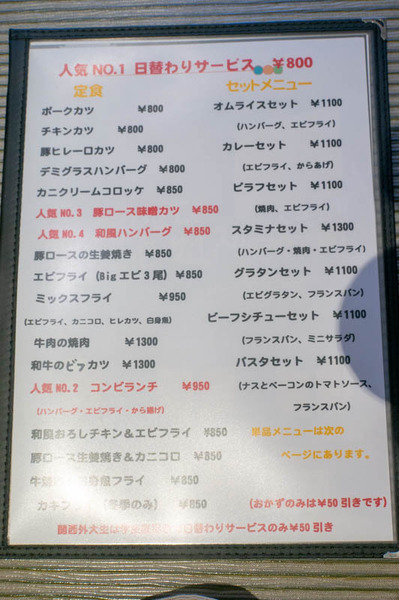 人気 NO.1 日替わりサービス ¥800
定食
ポークカツ ¥800
チキンカツ ¥800
豚ヒレーロカツ ¥800
デミグラスハンバーグ ¥800
カニクリームコロッケ ¥850
人気 NO.3 豚ロース味噌カツ ¥850
人気 NO.4 和風ハンバーグ ¥850
豚ロースの生姜焼き ¥850
エビフライ（Big エビ 3 尾） ¥850
ミックスフライ ¥950
（エビフライ、カニコロ、ヒレカツ、白身魚）
牛肉の焼肉 ¥1300
和牛のビフカツ ¥1300
人気 NO.2 コンビランチ ¥950
（ハンバーグ・エビフライ・から揚げ）
和風おろしチキン＆エビフライ ¥850
豚ロース生姜焼き＆カニコロ ¥850
フライ ¥850
（冬季のみ） ¥850
セットメニュー
オムライスセット ¥1100
（ハンバーグ、エビフライ）
カレーセット ¥1100
（エビフライ、からあげ）
ピラフセット ¥1100
（焼肉、エビフライ）
スタミナセット ¥1300
（ハンバーグ・焼肉・エビフライ）
グラタンセット ¥1100
（エビグラタン、フランスパン）
ビーフシチューセット ¥1100
（フランスパン、ミニサラダ）
パスタセット ¥1100
（ナスとベーコンのトマトソース、
フランスパン）
単品メニューは次の
ページにあります。
（おかずのみは¥50 引きです）
関西外大生 日替わりサービスのみ¥50 引き